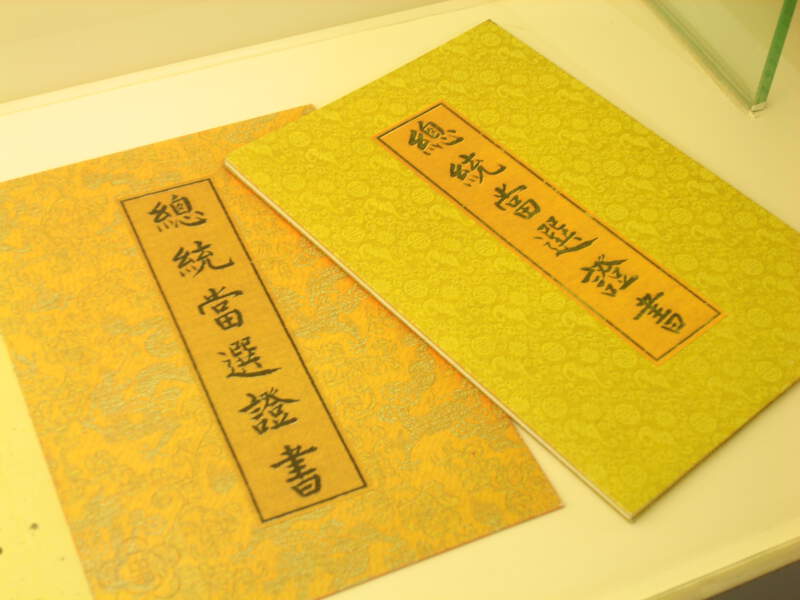 總統當選證書
總統當選證書